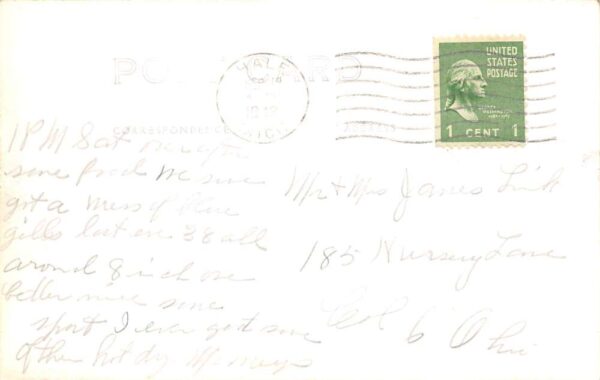 POST CARD
HALE
MICH
UNITED
STATES
POSTAGE
1 CENT 1
CORRESPONDENCE
ADDRESS
1 PM Sat
some food We sure
got a mess of Blue
gills last eve 38 all
around 8 inch
better
sport I ever got some
of the hot dry
Mr & Mrs James Link
185 Nursery Lane
Col 6 Ohio